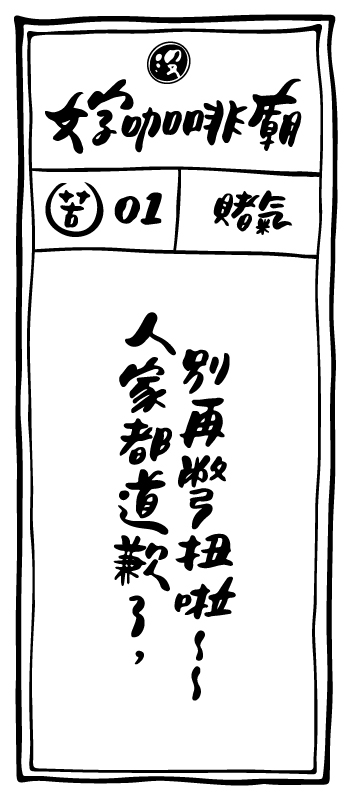 没
好咖啡廟
苦 01
賭氣
別再彆扭啦~~
人家都道歉了，